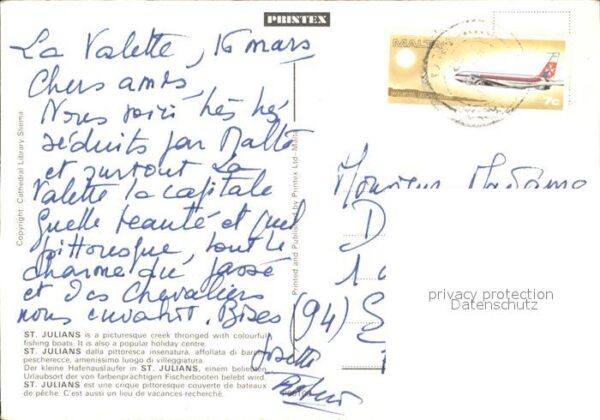 PRINTEX
La Valette, 16 mars
Chers amis,
Nous voici très très
séduits par Malte
et surtout La
Valette la capitale
Quelle beauté et quel
pittoresque, tout le
charme du passé
et des Chevaliers
nous envahit. Bises
Josette
MALTA
7c
Monsieur Madame
D
1
(94) S
privacy protection
Datenschutz
Copyright: Cathedral Library Sliema
Printed and Published by Printex Ltd-Malta
ST. JULIANS is a picturesque creek thronged with colourful
fishing boats. It is also a popular holiday centre.
ST. JULIANS dalla pittoresca insenatura, affollata di barche
pescherecce, amenissimo luogo di villeggiatura.
Der kleine Hafenauslaufer in ST. JULIANS, einem beliebten
Urlaubsort der von farbenprächtigen Fischerbooten belebt wird.
ST. JULIANS est une crique pittoresque couverte de bateaux
de pêche. C'est aussi un lieu de vacances recherché.